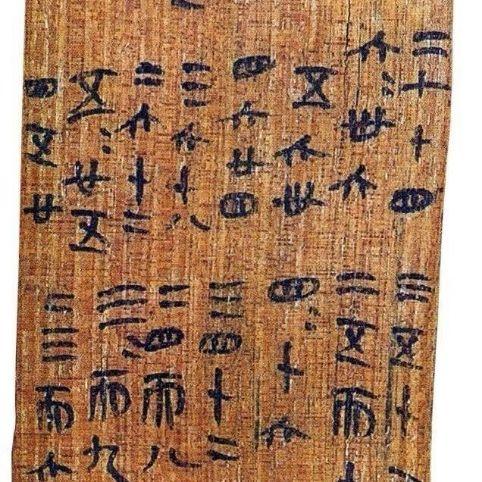 二七十四
六=卅六
五六卅
四六廿四
三六十八
二六十二
五=廿五
四五廿
三五十
二五而十
四=十六
三四十二
二四而八
三=而九
二三而六